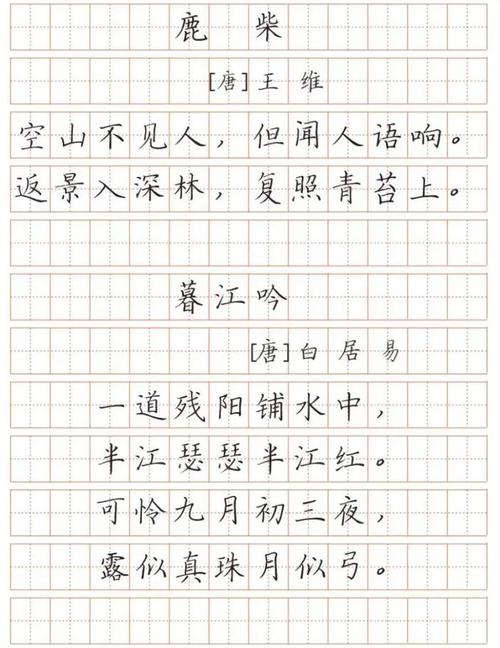 鹿柴
[唐]王维
空山不见人，但闻人语响。
返景入深林，复照青苔上。
暮江吟
[唐]白居易
一道残阳铺水中，
半江瑟瑟半江红。
可怜九月初三夜，
露似真珠月似弓。